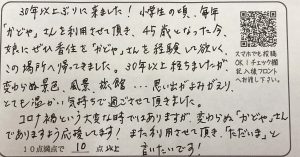 30年以上ぶりに来ました！小学生の頃、毎年
「かどや」さんを利用させて頂き、45歳となった今、
娘にぜひ昔仕を「かどや」さんを経験して欲しく、
この場所へ帰ってきました。30年以上経ちましたが
変わらぬ景色、風景、旅館…思い出がよみがえり、
とても温かい気持ちで過ごさせて頂きました。
コロナ禍という大変な時ではありますが、変わらぬ「かどや」さん
でありますよう応援してます！また利用させて頂き、「ただいま」と
10点満点で 10 点以上 言いたいです！
スマホでも投稿
OK！チェック欄
記入後フロント
へお渡し下さい。